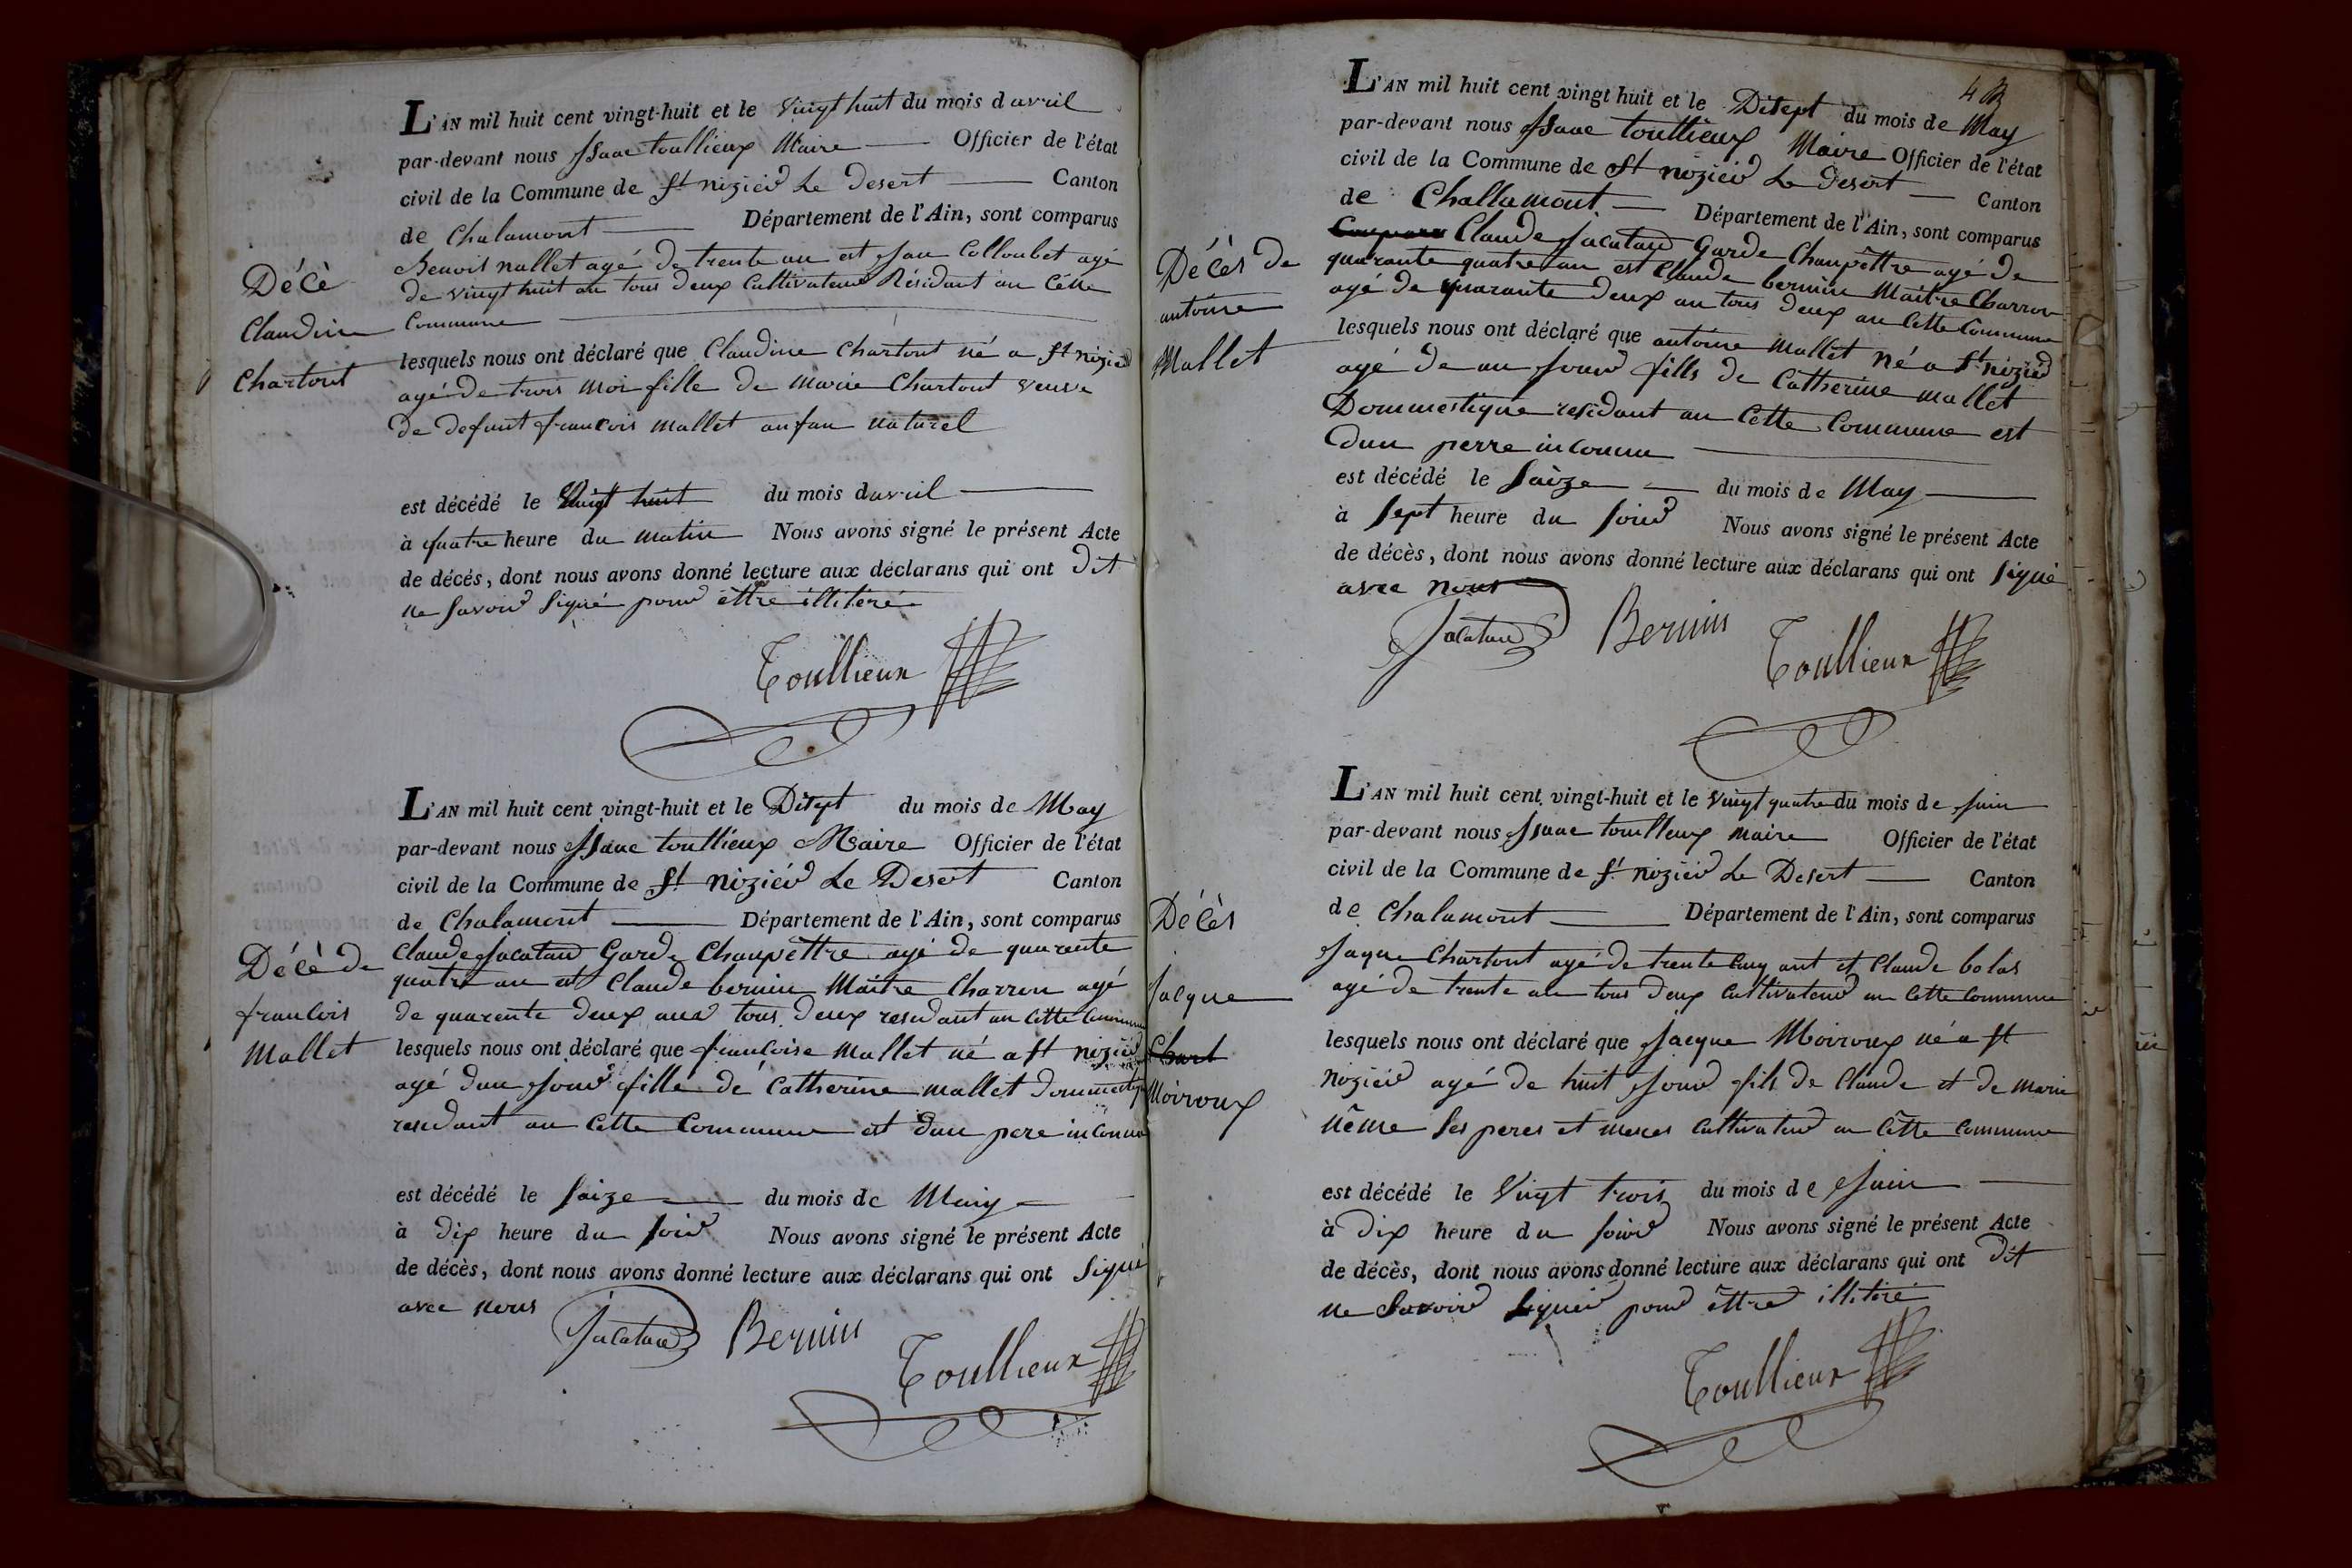 L'AN mil huit cent vingt-huit et le vingt huit du mois davril
par-devant nous Isaac toullieux Maire Officier de l'état
civil de la Commune de St niziér Le Desert Canton
de Chalamont Département de l'Ain, sont comparus
Benoit nallet agé de trente an est Jan Colloubet agé
de vingt huit an tous deux Cultivateur Résidant an Cette
Commune
Décè
Claudine
Chartout
lesquels nous ont déclaré que Claudine Chartout né a St niziér
agé de trois moi fille de Marie Chartout veuve
de defunt francois mallet anfan naturel
est décédé le Vingt huit du mois davril
à quatre heure du matin Nous avons signé le présent Acte
de décés, dont nous avons donné lecture aux déclarans qui ont dit
ne savoir signé pour èttre illitéré
Toullieux
L'AN mil huit cent vingt-huit et le Disept du mois de May
par-devant nous Isaac toullieux Maire Officier de l'état
civil de la Commune de St niziér Le Desert Canton
de Chalamont Département de l'Ain, sont comparus
Claude Jacatard Garde Champêttre agé de quarente
quatre an et Claude bernin Maitre Charron agé
de quarente deux ans tous deux residant an Cette Commune
Décè de
francois
Mallet
lesquels nous ont déclaré que francoise Mallet né a St niziér
agé dun Jour fille dé Catherine mallet dommestique
residant an Cette Commune est dun pere inconnu
est décédé le saize du mois de May
à Dix heure du soir Nous avons signé le présent Acte
de décès, dont nous avons donné lecture aux déclarans qui ont signé
avec nous
Jacatard Bernin
Toullieux
4
L'AN mil huit cent vingt huit et le Disept du mois de May
par-devant nous Isaac toullieux Maire Officier de l'état
civil de la Commune de St niziér Le Desert Canton
de Challamont Département de l'Ain, sont comparus
Claude Jacatard Garde Champêttre agé de
quarante quatre an est Claude bernin Maitre Charron
agé de quarante deux an tous deux an Cette Commune
Décès de
antoine
Mallet
lesquels nous ont déclaré que antoine Mallet né a St niziér
agé de un Jour fills de Catherine mallet
Dommestique residant an Cette Commune est
dun perre inconnu
est décédé le saize du mois de May
à sept heure du soir Nous avons signé le présent Acte
de décès, dont nous avons donné lecture aux déclarans qui ont signé
avec nous
Jacatard Bernin
Toullieux
L'AN mil huit cent vingt-huit et le vingt quatre du mois de Juin
par-devant nous Isaac toullieux maire Officier de l'état
civil de la Commune de St niziér Le Desert Canton
de Chalamont Département de l'Ain, sont comparus
Jaque Chartout agé de trente cinq ant et Claude bolas
agé de trente an tous deux Cultivateur an Cette Commune
Décès
Jacque
Chart
Moiroux
lesquels nous ont déclaré que Jacque Moiroux né a St
niziér agé de huit Jour fils de Claude et de marie
ses peres et meres Cultivateur an Cette Commune
est décédé le Vingt trois du mois de Juin
à Dix heure du soir Nous avons signé le présent Acte
de décès, dont nous avons donné lecture aux déclarans qui ont dit
ne Savoir signér pour êttre illitéré
Toullieux